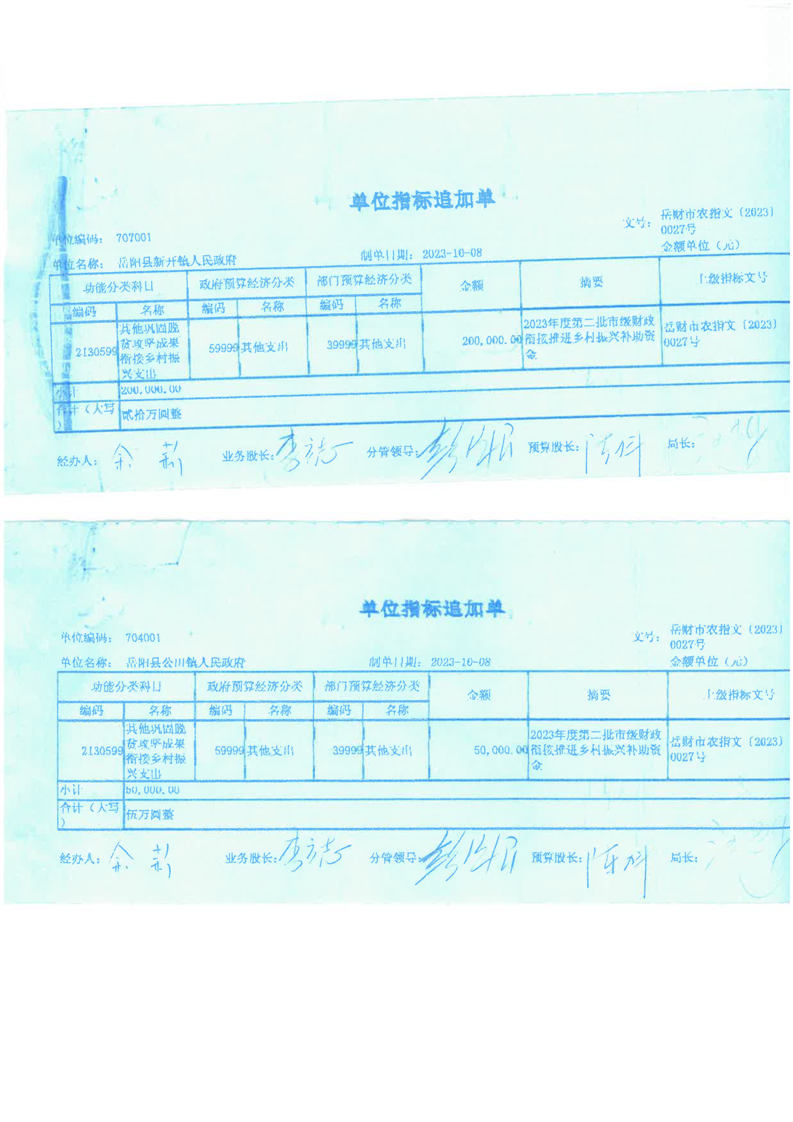 单位指标追加单
文号： 岳财市农指文〔2023〕
0027号
单位编码： 707001
金额单位（元）
单位名称： 岳阳县新开镇人民政府 制单日期： 2023-10-08
功能分类科目 政府预算经济分类 部门预算经济分类 金额 摘要 上级指标文号
编码 名称 编码 名称 编码 名称
2130599 其他巩固脱贫攻坚成果衔接乡村振兴支出 59999 其他支出 39999 其他支出 200,000.00 2023年度第二批市级财政衔接推进乡村振兴补助资金 岳财市农指文〔2023〕0027号
小计 200,000.00
合计（大写） 贰拾万圆整
经办人： 余莉 业务股长： 分管领导： 预算股长： 局长：
单位指标追加单
文号： 岳财市农指文〔2023〕
0027号
单位编码： 704001
金额单位（元）
单位名称： 岳阳县公田镇人民政府 制单日期： 2023-10-08
功能分类科目 政府预算经济分类 部门预算经济分类 金额 摘要 上级指标文号
编码 名称 编码 名称 编码 名称
2130599 其他巩固脱贫攻坚成果衔接乡村振兴支出 59999 其他支出 39999 其他支出 50,000.00 2023年度第二批市级财政衔接推进乡村振兴补助资金 岳财市农指文〔2023〕0027号
小计 50,000.00
合计（大写） 伍万圆整
经办人： 余莉 业务股长： 分管领导： 预算股长： 局长：